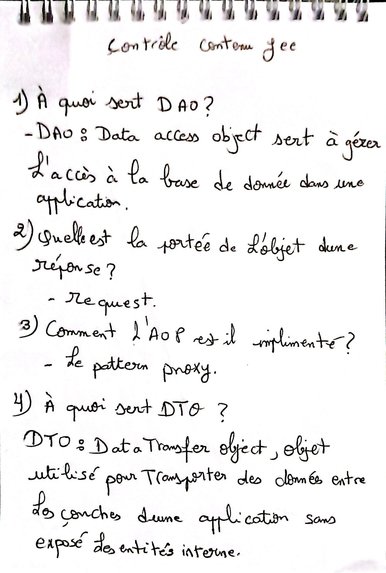 Contrôle contenu jee
1) À quoi sert DAO?
- DAO : Data access object sert à gérer
L'accès à la base de donnée dans une
application.
2) Quelle est la portée de L'objet dune
réponse?
- request.
3) Comment l'AOP est il implimenté?
- Le pattern proxy.
4) À quoi sert DTO ?
DTO : Data Transfer object, objet
utilisé pour Transporter des données entre
Les couches d'une application sans
exposé Les entités interne.